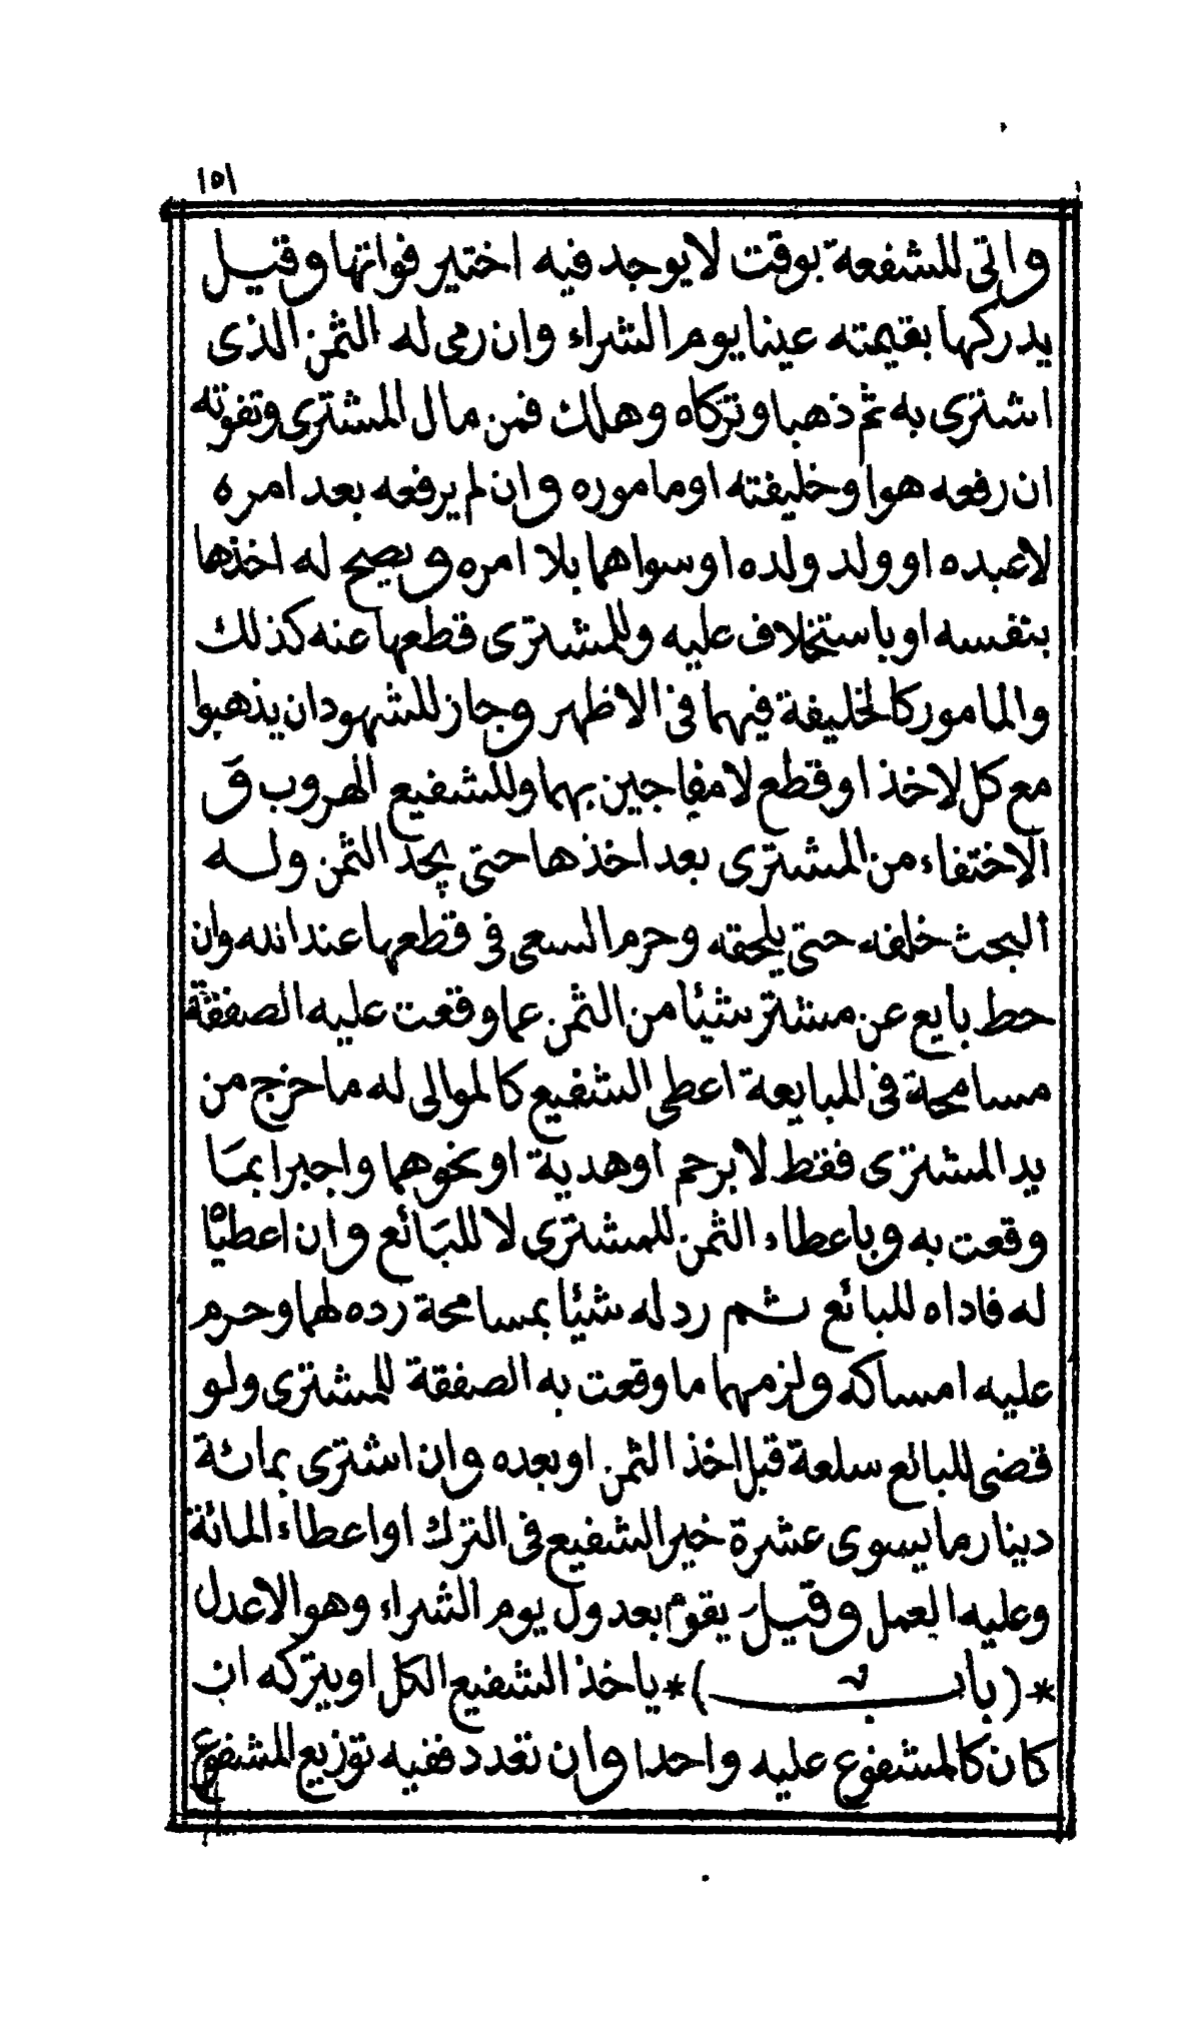 ١٥١
واتى للشفعة بوقت لايوجد فيه اختير فواتها وقيل
يدركها بقيمته عينا يوم الشراء وان رمى له الثمن الذى
اشترى به ثم ذهبا وتركاه وهلك فمن مال المشترى وتفوته
ان رفعه هو او خليفته او ماموره وان لم يرفعه بعد امره
لاعبده او ولد ولده او سواهما بلا امره ويصح له اخذها
بنفسه او باستخلاف عليه وللمشترى قطعها عنه كذلك
والمامور كالخليفة فيهما فى الاظهر وجاز للشهود ان يذهبوا
مع كل لاخذ او قطع لامفاجين بهما وللشفيع الهروب و
الاختفاء من المشترى بعد اخذها حتى يجد الثمن وله
البحث خلفه حتى يلحقه وحرم السعى فى قطعها عند الله وان
حط بايع عن مشتر شيئا من الثمن عما وقعت عليه الصفقة
مسامحة فى المبايعة اعطى الشفيع كالموالى له ما خرج من
يد المشترى فقط لا برحم او هدية او نحوهما واجبرا بما
وقعت به وباعطاء الثمن للمشترى لا للبائع وان اعطياه
له فاداه للبائع ثم رد له شيئا بمسامحة رده لهما وحرم
عليه امساكه ولزمهما ما وقعت به الصفقة للمشترى ولو
قضى للبائع سلعة قبل اخذ الثمن او بعده وان اشترى بمائة
دينار ما يسوى عشرة خير الشفيع فى الترك او اعطاء المائة
وعليه العمل وقيل يقوم بعدول يوم الشراء وهو الاعدل
*( باب )* ياخذ الشفيع الكل او يتركه ان
كان كالمشفوع عليه واحدا وان تعدد ففيه توزيع المشفوع